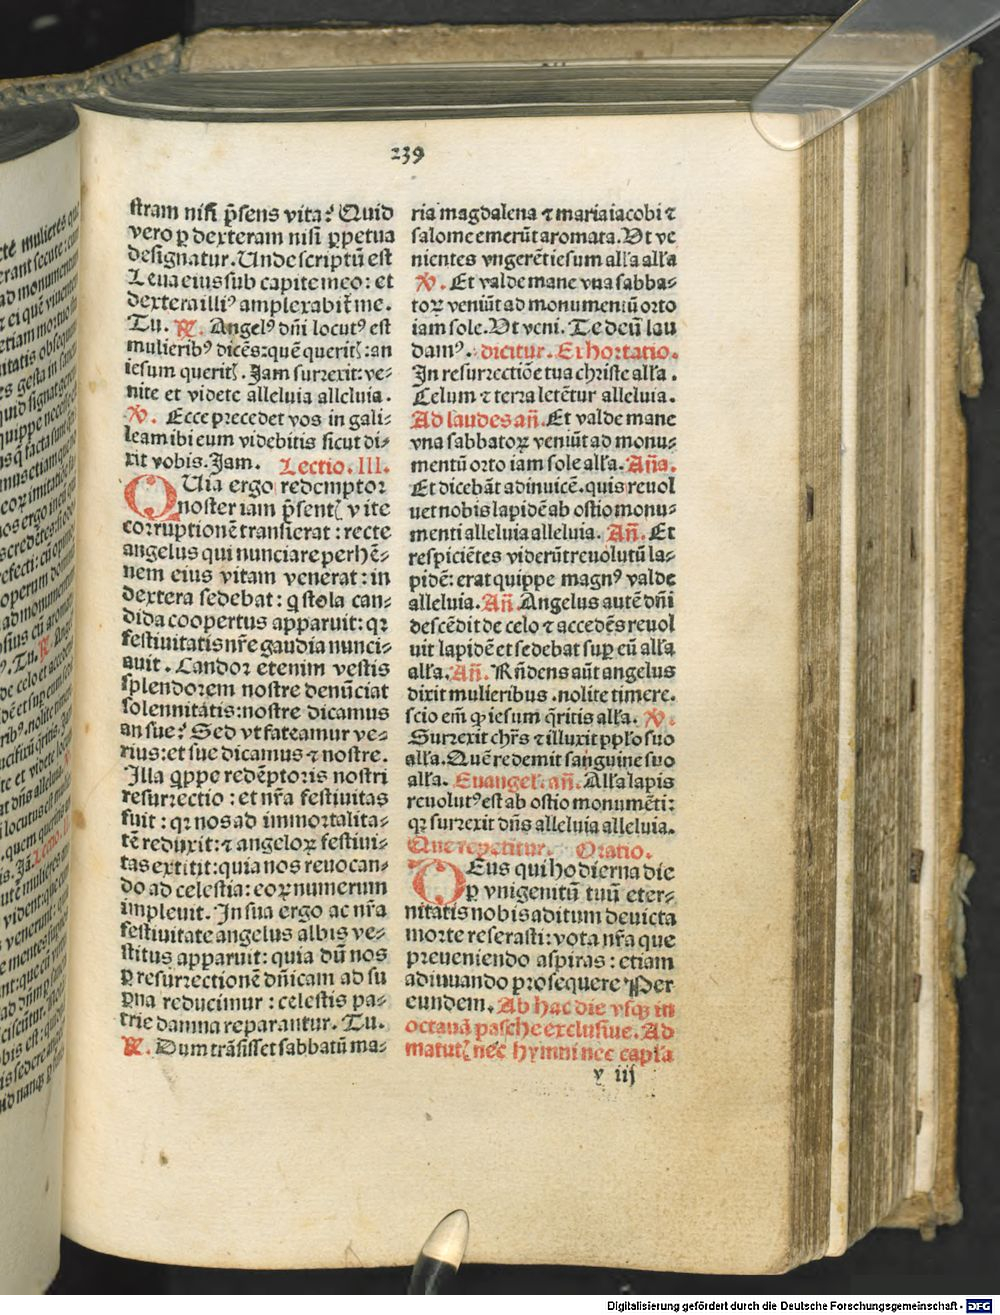 239
stram nisi p̄sens vita? Quid
vero ꝑ dexteram nisi ꝑpetua
designatur. Unde scriptū est
Leua eius sub capite meo: et
dextera illi⁹ amplexabit̄ me.
Tu. ℟. Angel⁹ dñi locut⁹ est
mulierib⁹ dicēs: quē queritꝭ: an
iesum queritꝭ. Jam surrexit: ve⸗
nite et videte alleluia alleluia.
℣. Ecce precedet vos in gali⸗
leam ibi eum videbitis sicut di⸗
xit vobis. Jam. Lectio. III.
QUia ergo redemptor
noster iam p̄sentꝭ vite
corruptionē transierat: recte
angelus qui nunciare perhē⸗
nem eius vitam venerat: in
dextera sedebat: q stola can⸗
dida coopertus apparuit: qꝛ
festiuitatis nr̄e gaudia nunci⸗
auit. Candor etenim vestis
splendorem nostre denūciat
solennitatis: nostre dicamus
an sue? Sed vt fateamur ve⸗
rius: et sue dicamus ⁊ nostre.
Illa q̇ppe redēptoris nostri
resurrectio: et nr̄a festiuitas
fuit: qꝛ nos ad immortalita⸗
tē reduxit: ⁊ angeloꝝ festiui⸗
tas extitit: quia nos reuocan⸗
do ad celestia: eoꝝ numerum
impleuit. In sua ergo ac nr̄a
festiuitate angelus albis ve⸗
stitus apparuit: quia dū nos
ꝑ resurrectionē dñicam ad su
ꝑna reducimur: celestis pa⸗
trie damna reparantur. Tu.
℟. Dum trāsisset sabbatū ma⸗
ria magdalena ⁊ maria iacobi ⁊
salome emerūt aromata. Vt ve
nientes vngerēt iesum alľa alľa
℣. Et valde mane vna sabba⸗
toꝝ veniūt ad monumentū orto
iam sole. Vt veni. Te deū lau
dam⁹. dicitur. Exhortatio.
In resurrectiōe tua christe alľa.
Celum ⁊ terra letētur alleluia.
Ad laudes añ. Et valde mane
vna sabbatoꝝ veniūt ad monu⸗
mentū orto iam sole alľa. Aña.
Et dicebāt adinuicē. quis reuol
uet nobis lapidē ab ostio monu⸗
menti alleluia alleluia. Añ. Et
respiciētes viderūt reuolutū la⸗
pidē: erat quippe magn⁹ valde
alleluia. Añ. Angelus autē dñi
descēdit de celo ⁊ accedēs reuol
uit lapidē et sedebat suꝑ eū alľa
alľa. Añ. Rñdens aūt angelus
dixit mulieribus. nolite timere.
scio em̄ ꝙ iesum q̄ritis alľa. ℣.
Surrexit chr̄s ⁊ illuxit pplo suo
alľa. Quē redemit sanguine suo
alľa. Euangel. añ. Alľa lapis
reuolut⁹ est ab ostio monumēti:
qꝛ surrexit dñs alleluia alleluia.
Que repetitur. Oratio.
DEus qui hodierna die
ꝑ vnigenitū tuū eter⸗
nitatis nobis aditum deuicta
morte reserasti: vota nr̄a que
preueniendo aspiras: etiam
adiuuando prosequere Per
eundem. Ab hac die vsqꝫ in
octauā pasche exclusiue. Ad
matutꝭ nec hymni nec capľa
y iij
Digitalisierung gefördert durch die Deutsche Forschungsgemeinschaft - DFG